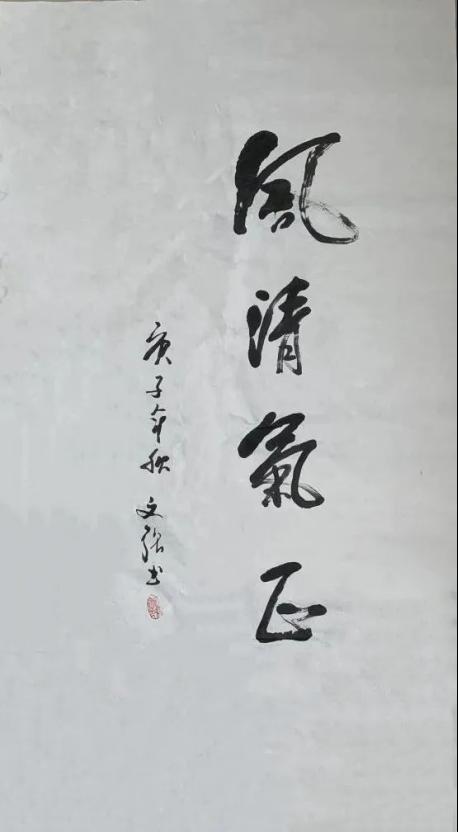 風清氣正
庚子年秋 文强书